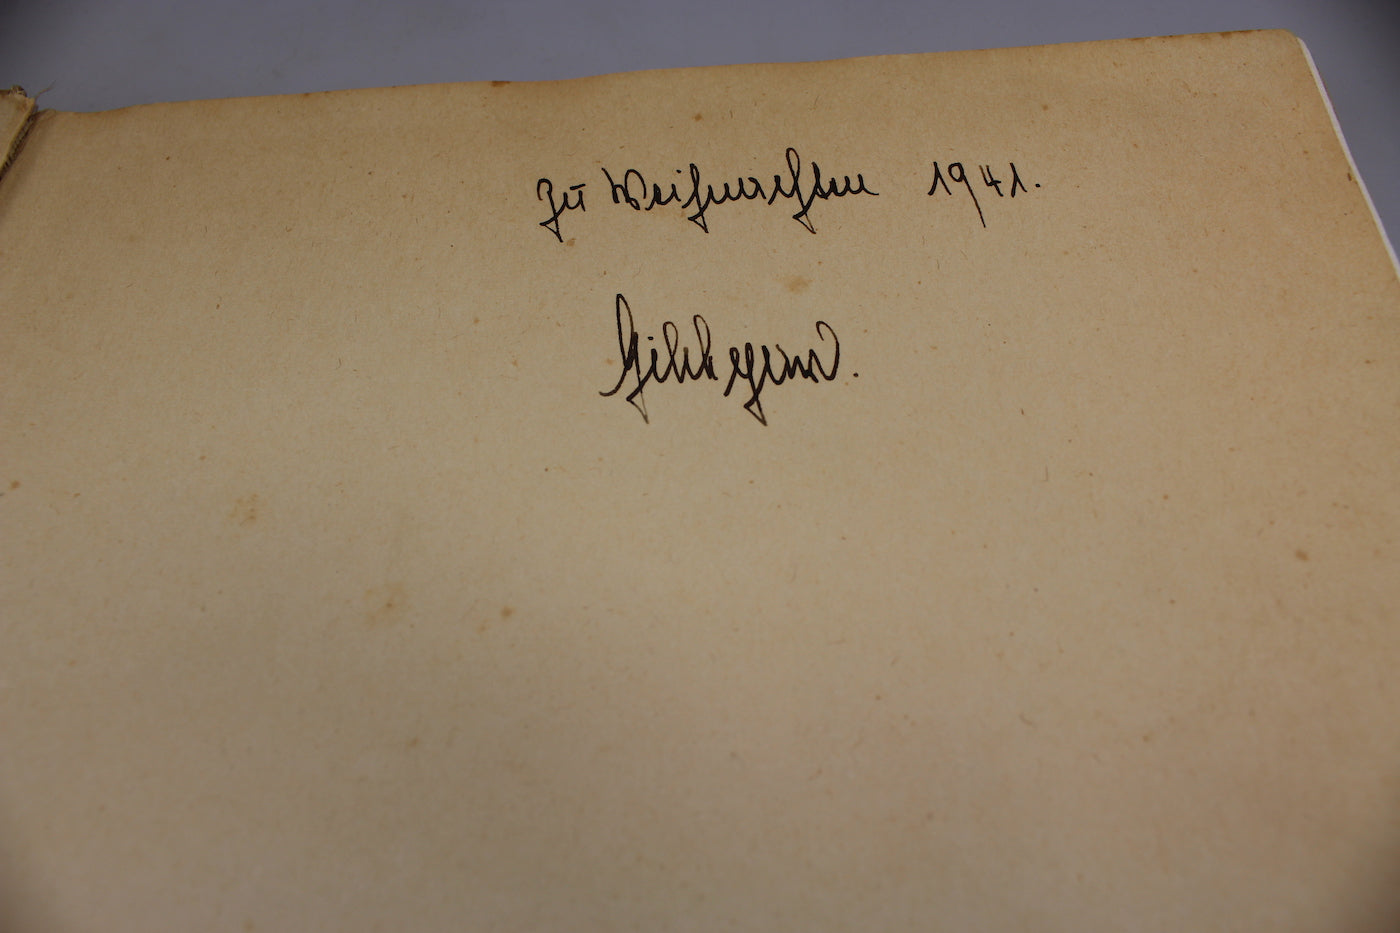 Zu Weihnachten 1941.
Hildegard.